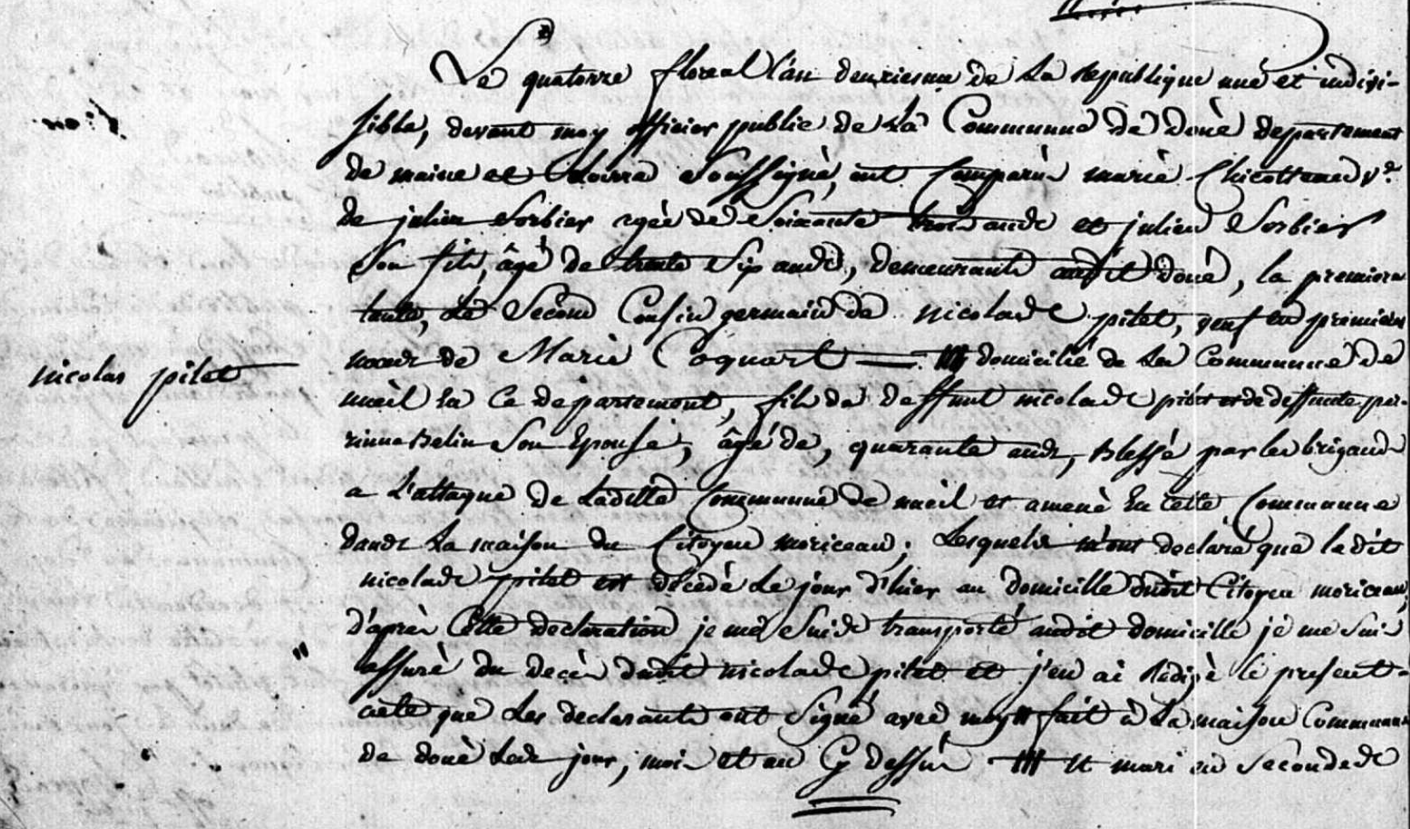 Le quatorze floreal l'an deuxiesme de la Republique une et indivi-
sible, devant moy officier public de la Commune de Doué departement
de maine et Loire soussigné, ont comparus marie Chicotteau vᵉ
de julien Sorbier agée de soixante trois ands et julien Sorbier
son fils, âgé de trente six ands, demeurants audit doué, la premiere
tante, le second Cousin germain de nicolas pilet, veuf en premiere
noces de Marie Coquart domicilié de la Commune de
nicolas pilet
nueil en ce departement, fils de deffunt nicolas pilet et de deffunte per-
rinne Belin son Epouse, âgé de, quarante ands, blessé par les brigands
a l'attaque de ladite Commune de nueil et amené En cette Commune
dands la maison du Citoyen moriceau; Lesquels m'ont declaré que ledit
nicolas pilet est décédé le jour d'hier au domicille dudit Citoyen moriceau,
d'après cette declaration je me suis transporté audit domicille je me suis
assuré du decès dudit nicolas pilet et j'en ai Redigé le present
acte que les declarants ont signé avec moy fait à la maison Commune
de doué les jour, mois et an Cy dessus et mari en secondes